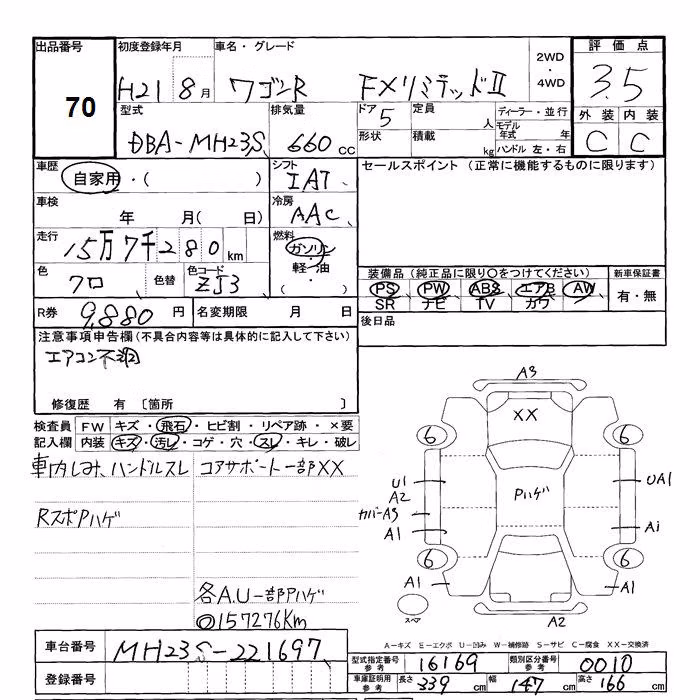 出品番号 初度登録年月 車名・グレード 2WD・4WD 評価点
70 H21 8月 ワゴンR FXリミテッドII 3.5
型式 排気量 ドア 5 定員 人 ディーラー・並行 外装 内装
DBA-MH23S 660cc 形状 積載 kg モデル年式 年 ハンドル 左・右 C C
車歴 自家用・( ) シフト IAT セールスポイント (正常に機能するものに限ります)
車検 年 月( 日) 冷房 AAC
走行 15万7千280km 燃料 ガソリン・軽油 ・( )
色 クロ 色替 色コード ZJ3 装備品(純正品に限り○をつけてください) 新車保証書
PS PW ABS エアB AW 有・無
SR ナビ TV カワ
R券 9,880円 名変期限 月 日 後日品
注意事項申告欄(不具合内容等は具体的に記入して下さい)
エアコン不調
修復歴 有 〔箇所 〕
検査員 FW キズ・飛石・ヒビ割・リペア跡・×要
記入欄 内装 キズ・汚レ・コゲ・穴・スレ・キレ・破レ
車内しみ、ハンドルスレ コアサポート一部XX
RスポPハゲ
各A.U一部Pハゲ
◎157276Km
A3
XX
6 6
U1 UA1
A2
Pハゲ
カバーA3
A1 Ai
6 6
A1 A1
スペア A2
A-キズ E-エクボ U-凹み W-補修跡 S-サビ C-腐食 XX-交換済
車台番号 MH23S-221697 型式指定番号 参考 16169 類別区分番号 参考 0010
登録番号 車庫証明用 参考 長さ 339cm 幅 147cm 高さ 166cm